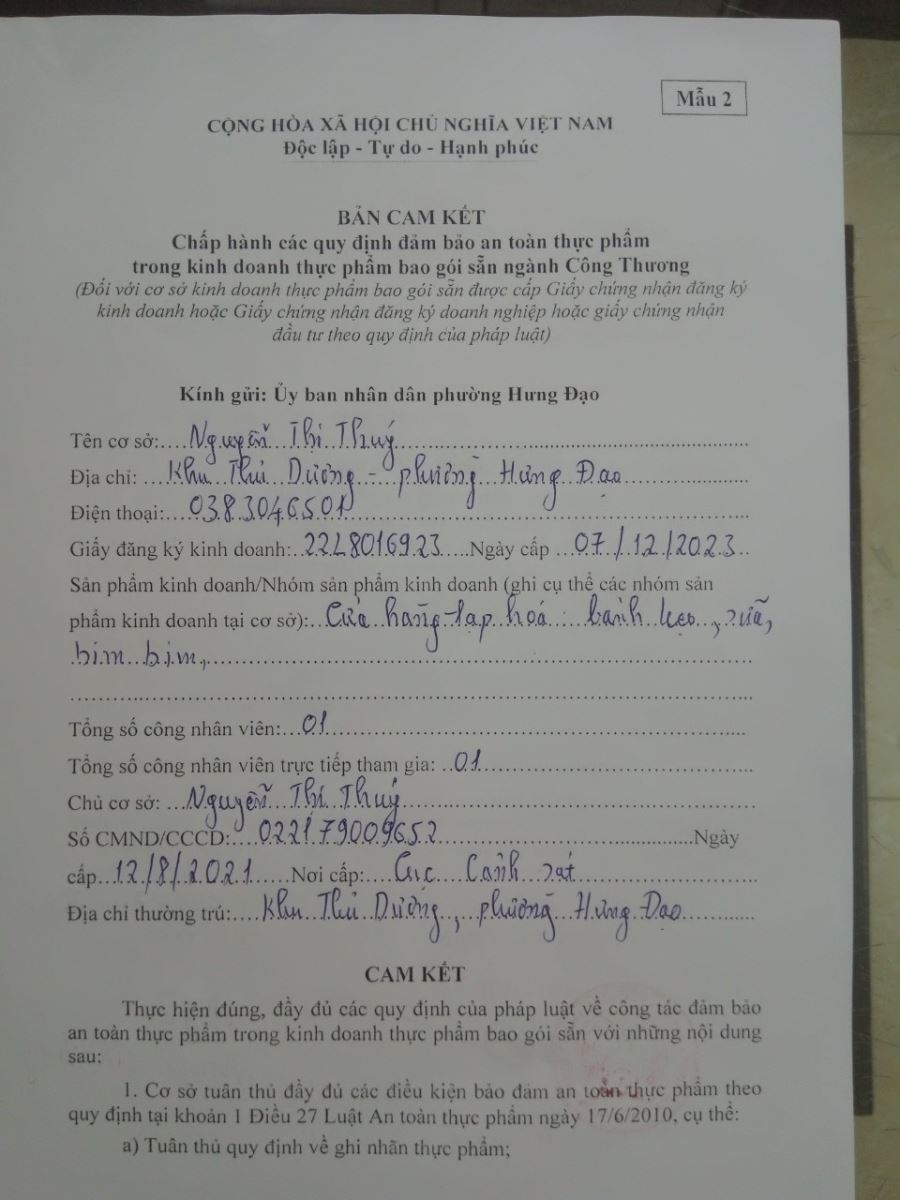 Mẫu 2
CỘNG HÒA XÃ HỘI CHỦ NGHĨA VIỆT NAM
Độc lập - Tự do - Hạnh phúc
BẢN CAM KẾT
Chấp hành các quy định đảm bảo an toàn thực phẩm
trong kinh doanh thực phẩm bao gói sẵn ngành Công Thương
(Đối với cơ sở kinh doanh thực phẩm bao gói sẵn được cấp Giấy chứng nhận đăng ký
kinh doanh hoặc Giấy chứng nhận đăng ký doanh nghiệp hoặc giấy chứng nhận
đầu tư theo quy định của pháp luật)
Kính gửi: Ủy ban nhân dân phường Hưng Đạo
Tên cơ sở: Nguyễn Thị Thuý
Địa chỉ: Khu Thủ Dương - phường Hưng Đạo
Điện thoại: 0383046501
Giấy đăng ký kinh doanh: 22L8016923 Ngày cấp 07/12/2023
Sản phẩm kinh doanh/Nhóm sản phẩm kinh doanh (ghi cụ thể các nhóm sản
phẩm kinh doanh tại cơ sở): Cửa hàng tạp hoá: bánh kẹo, sữa,
bim bim,
Tổng số công nhân viên: 01
Tổng số công nhân viên trực tiếp tham gia: 01
Chủ cơ sở: Nguyễn Thị Thuý
Số CMND/CCCD: 022179009652 Ngày
cấp 12/8/2021 Nơi cấp: Cục Cảnh sát
Địa chỉ thường trú: Khu Thủ Dương, phường Hưng Đạo
CAM KẾT
Thực hiện đúng, đầy đủ các quy định của pháp luật về công tác đảm bảo
an toàn thực phẩm trong kinh doanh thực phẩm bao gói sẵn với những nội dung
sau:
1. Cơ sở tuân thủ đầy đủ các điều kiện bảo đảm an toàn thực phẩm theo
quy định tại khoản 1 Điều 27 Luật An toàn thực phẩm ngày 17/6/2010, cụ thể:
a) Tuân thủ quy định về ghi nhãn thực phẩm;